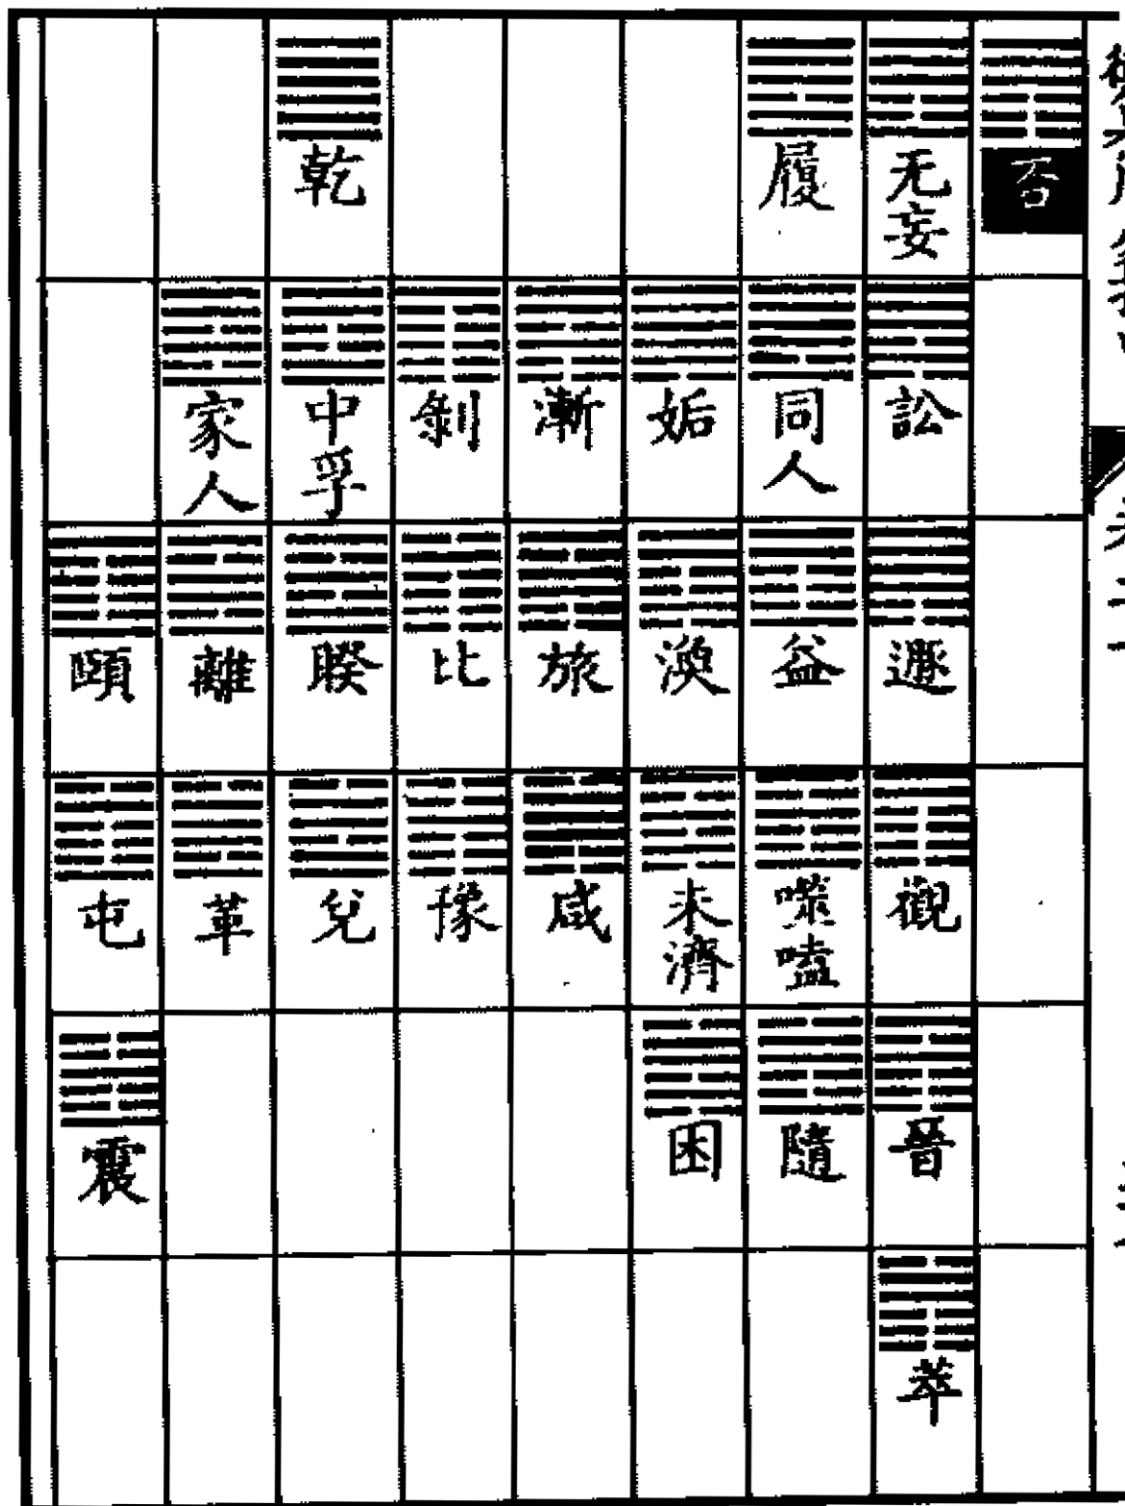 否
无妄 訟 遯 觀 晉 萃
履 同人 益 噬嗑 隨
姤 渙 未濟 困
漸 旅 咸
剝 比 豫
乾 中孚 睽 兌
家人 離 革
頤 屯 震